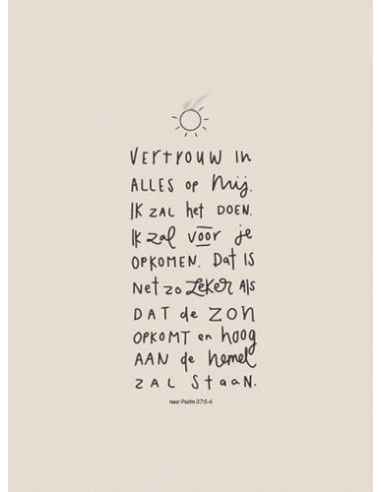 Vertrouw in
ALLES op Mij.
IK ZAL het DOEN.
Ik zal voor je
OPKOMEN. Dat is
Net zo zeker ALS
DAT de ZON
OPKOMT en hoog
AAN de hemel
ZAL Staan.
naar Psalm 37:5-6